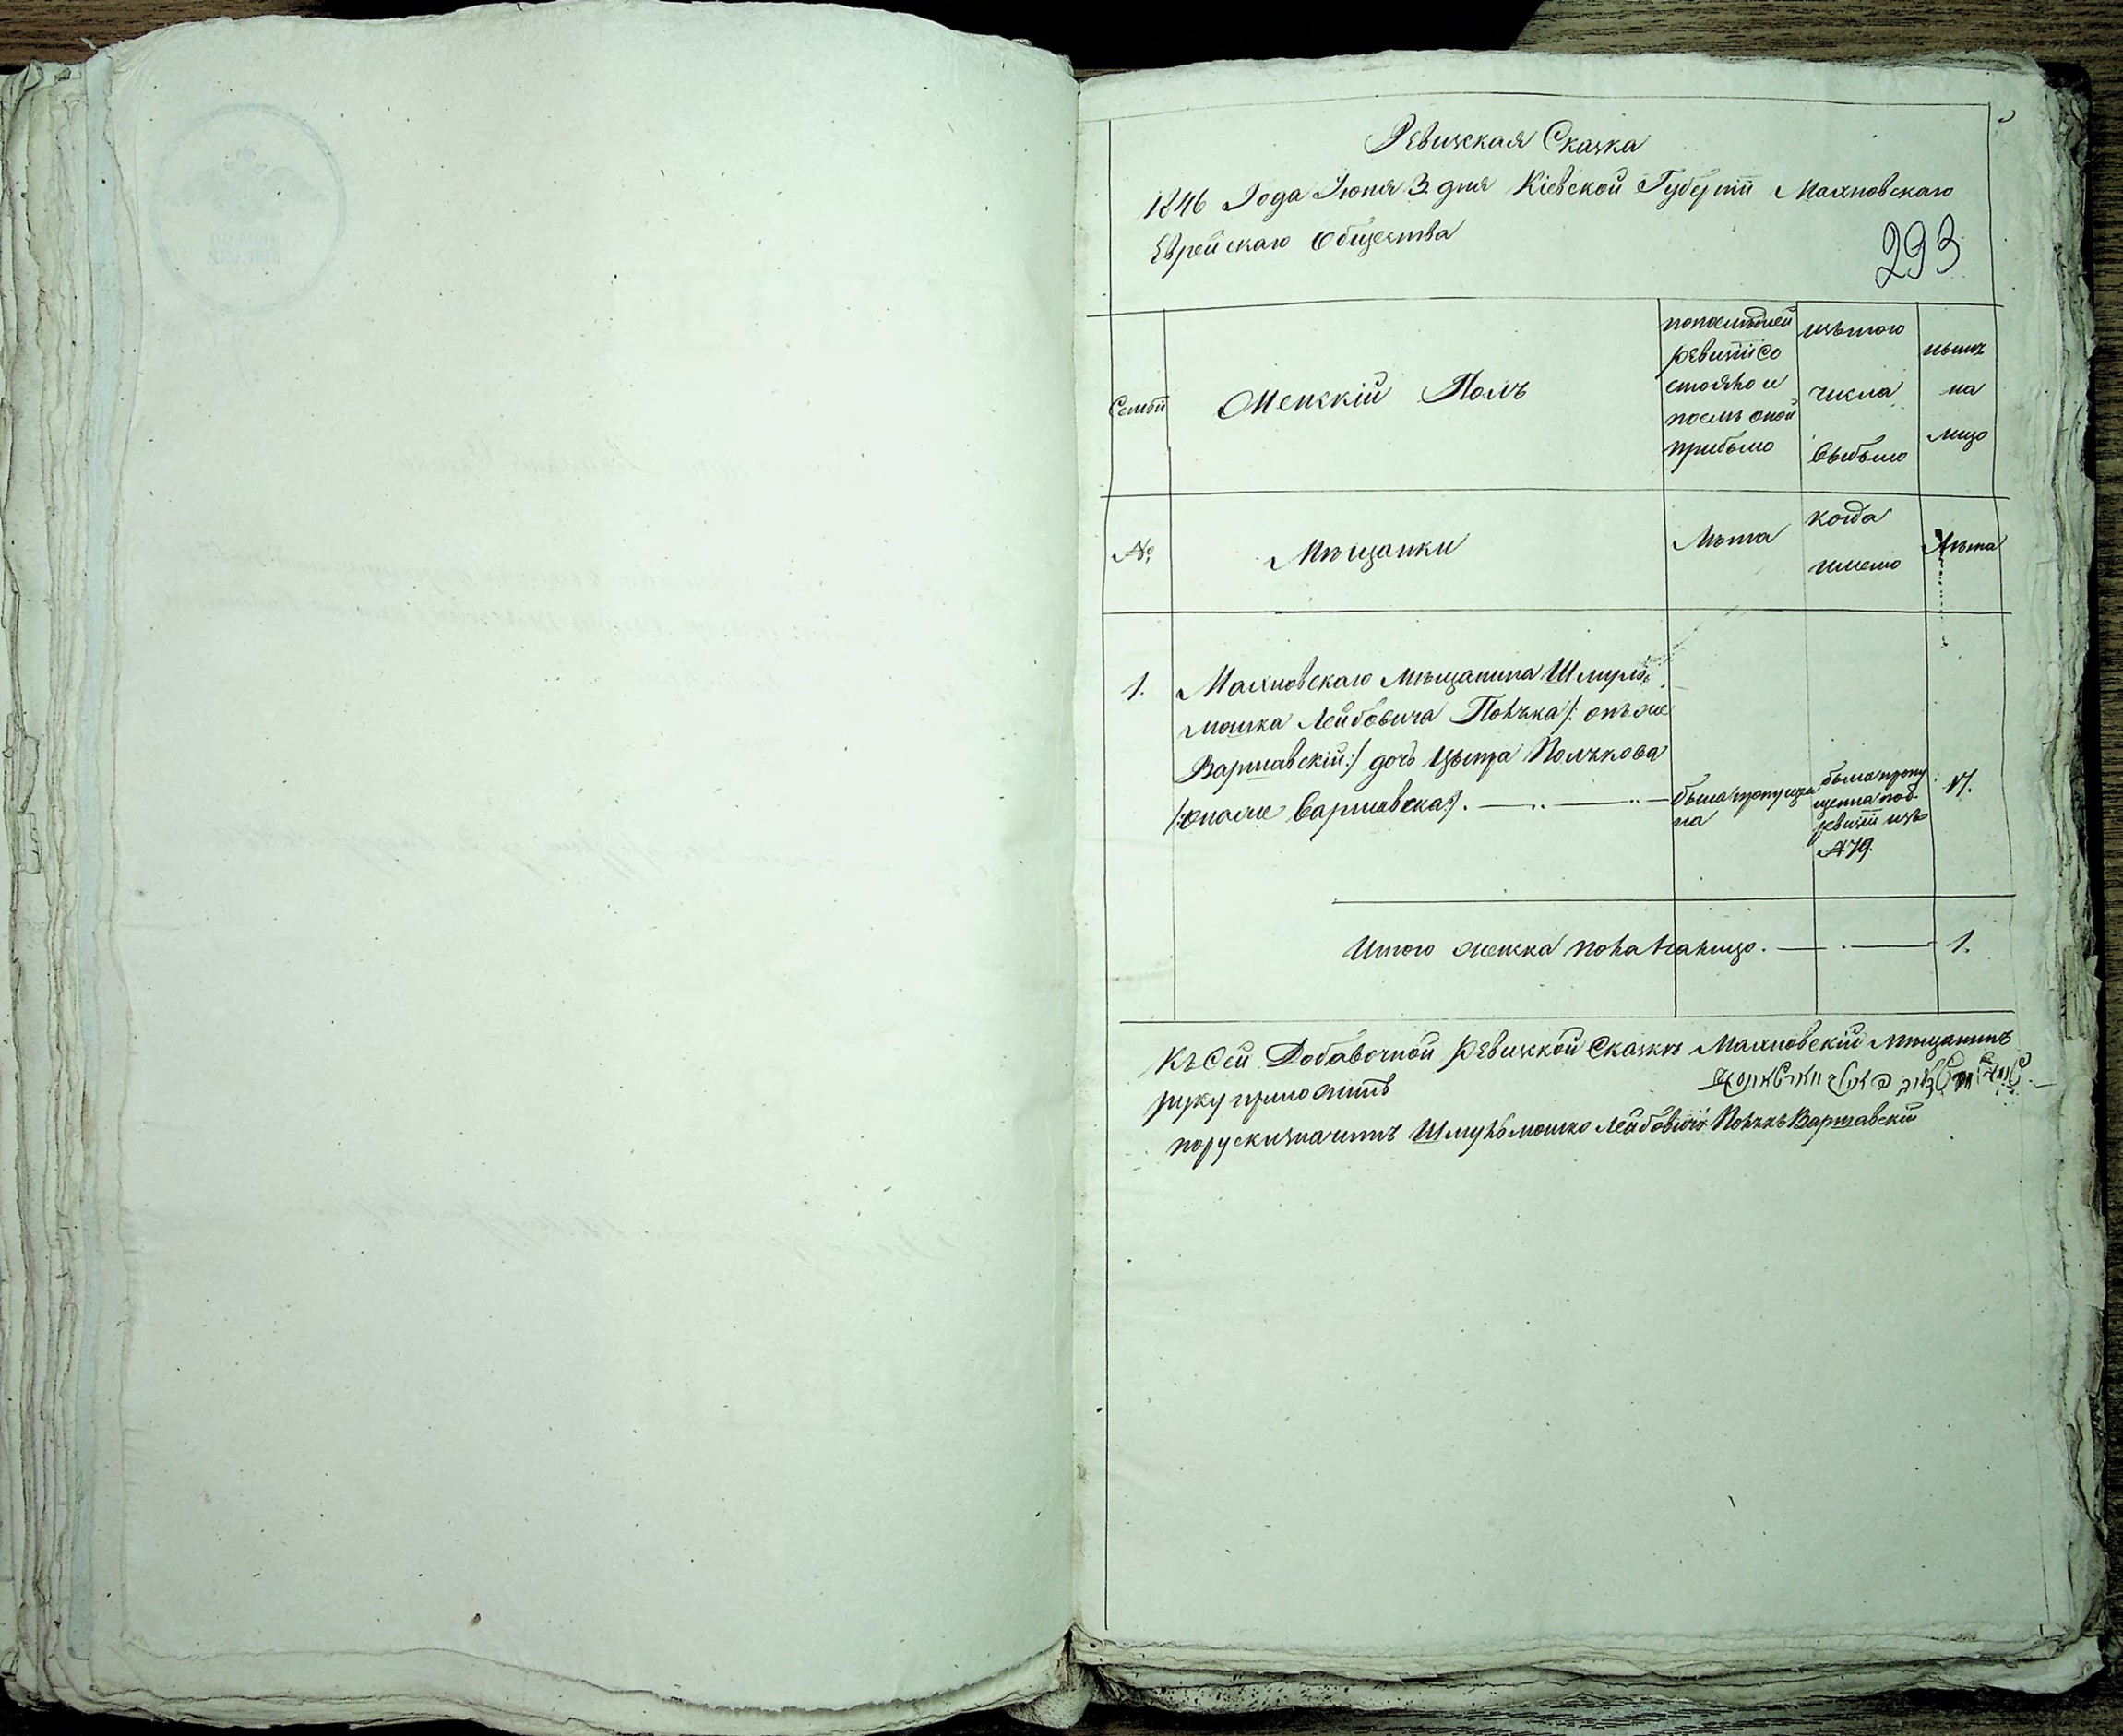 Ревизкая Сказка
1846 Года Июня 3 дня Кіевской Губерніи Махновскаго
Еврейскаго Общества
293
Семьи
Женскій Полъ
попослѣдней
ревизіи со
стояло и
послѣ оной
прибыло
изътого
числа
выбыло
нынѣ
на
лицо
№
Мѣщанки
Лѣта
когда
имено
Лѣта
1.
Махновскаго мѣщанина Шмуль
мошка Лейбовича Полъка /: онъже
Варшавскій:/ дочь Цыпра Полъкова
/:онаже Варшавска:/.
была пропуще
на
была пропу
щенна по 8
ревизіи изъ
№ 79.
17.
Итого женска пола налицо.
1.
Къ Сей Добавочной Ревизкой Сказкѣ Махновскій мѣщанинъ
руку приложилъ
поруски значитъ Шмуль мошко Лейбовичъ Полъкъ Варшавскій